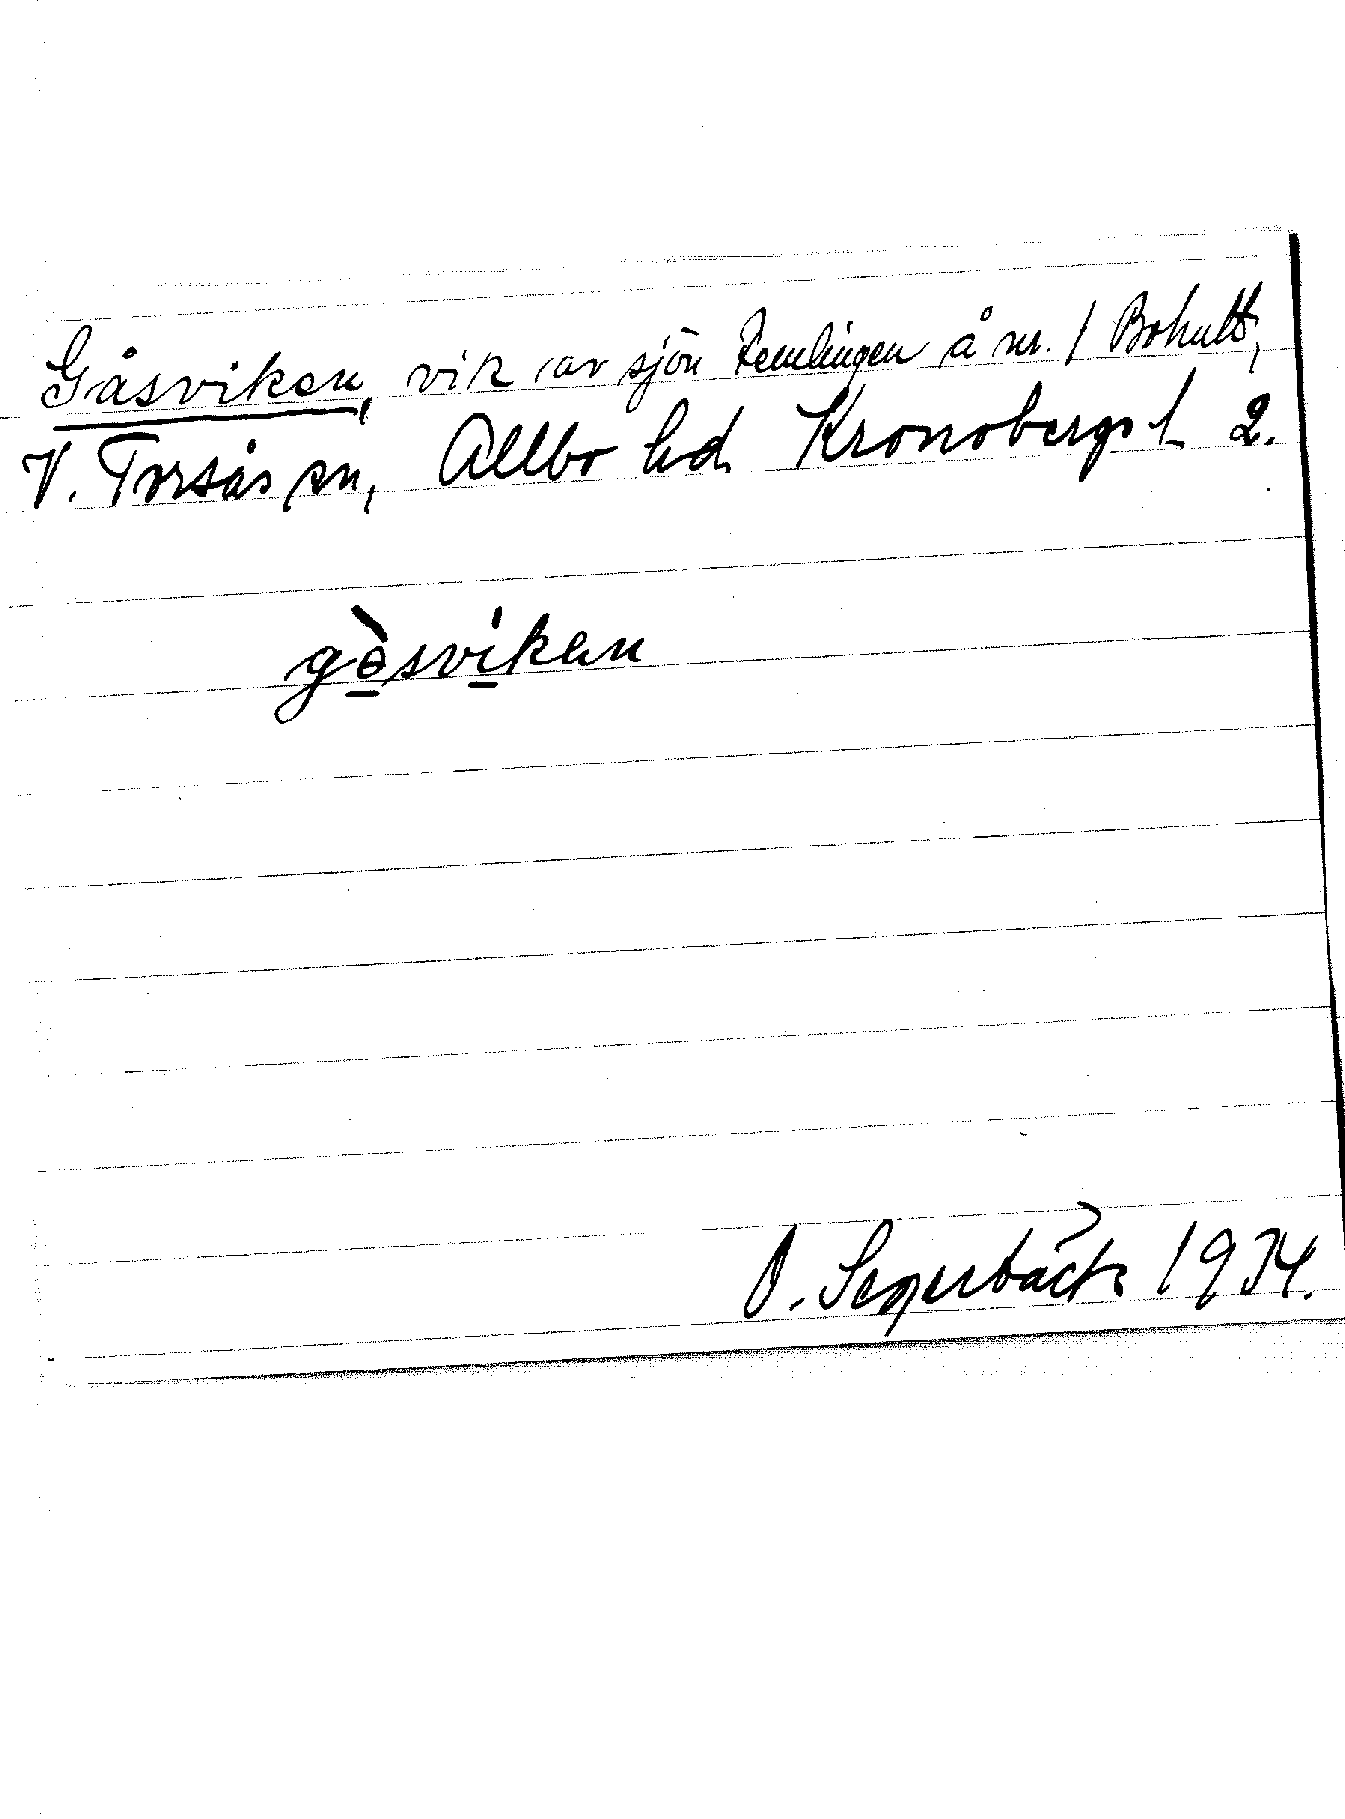 Gåsviken, vik av sjön Femlingen å nr. 1 Bohult,
V. Torsås sn, Allbo hd Kronobergs l 2.
gòsvikan
O. Segerbäck 1934.